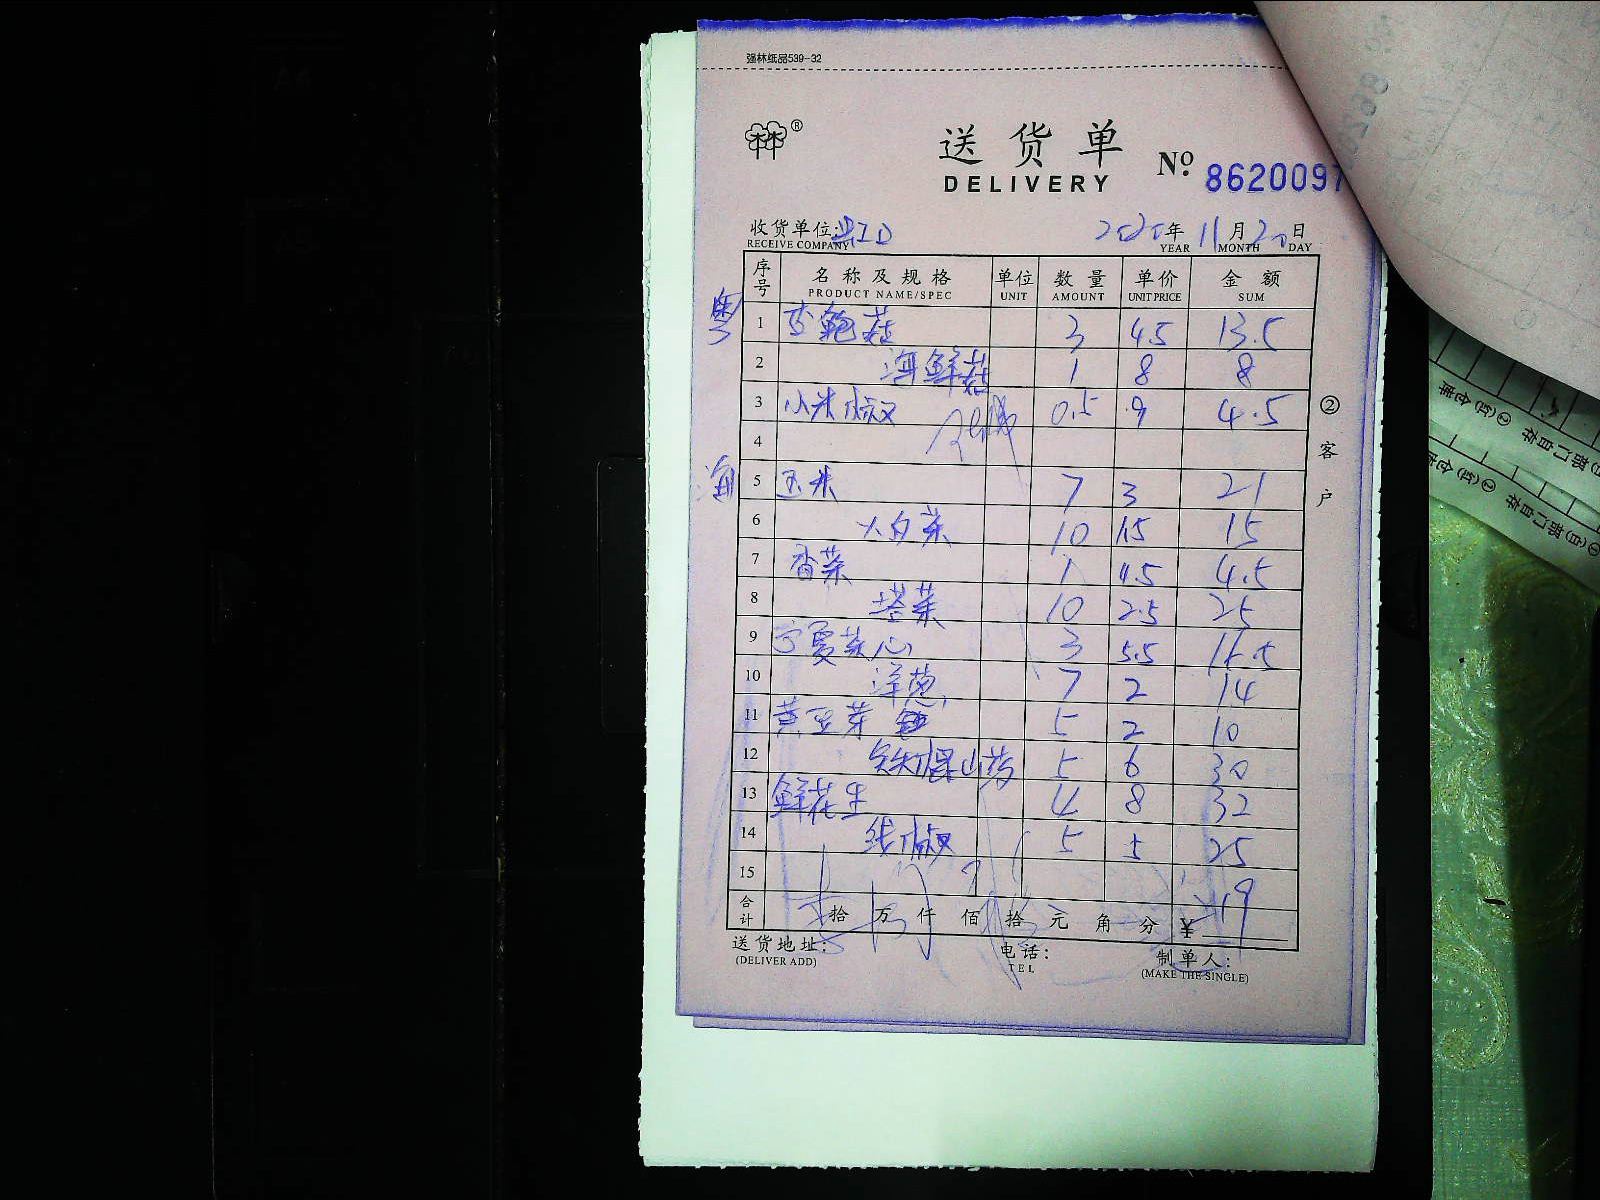 强林纸品539-32
送货单
DELIVERY
Nº 8620097
收货单位:
RECEIVE COMPANY
2020年 11月20日
YEAR MONTH DAY
序号 名称及规格 单位 数量 单价 金额
PRODUCT NAME/SPEC UNIT AMOUNT UNIT PRICE SUM
粤
1 杏鲍菇 3 4.5 13.5
2 海鲜菇 1 8 8
3 小米椒 0.5 9 4.5
4
海
5 玉米 7 3 21
6 大白菜 10 1.5 15
7 香菜 1 4.5 4.5
8 塔菜 10 2.5 25
9 宁夏菜心 3 5.5 16.5
10 洋葱 7 2 14
11 黄豆芽 5 2 10
12 铁棍山药 5 6 30
13 鲜花生 4 8 32
14 线椒 5 5 25
15
合计 拾 万 仟 佰 拾 元 角 分 ¥ 219
送货地址:
(DELIVER ADD)
电话:
TEL
制单人:
(MAKE THE SINGLE)
②客户